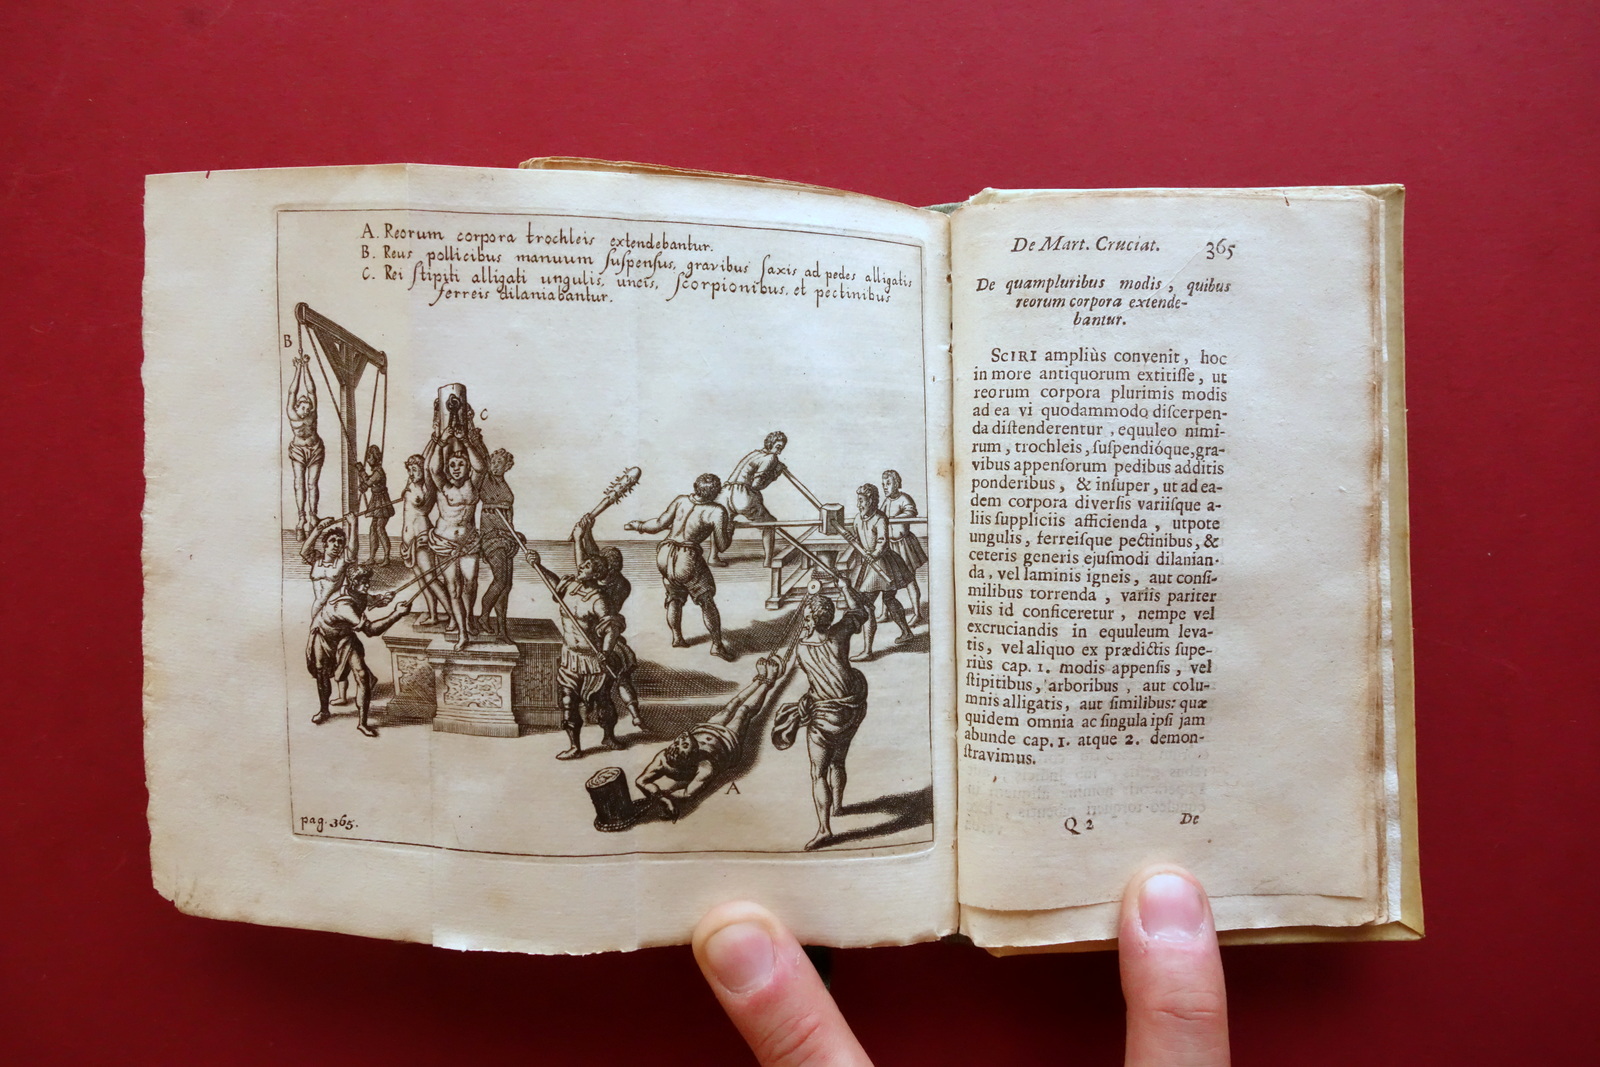 A. Reorum corpora trochleis extendebantur.
B. Reus pollicibus manuum suspensus, gravibus saxis ad pedes alligatis
C. Rei stipiti alligati ungulis, uncis, scorpionibus, et pectinibus
ferreis dilaniabantur.
B
C
A
pag. 365.
De Mart. Cruciat. 365
De quampluribus modis, quibus
reorum corpora extende-
bantur.
SCIRI ampliùs convenit, hoc
in more antiquorum extitiſſe, ut
reorum corpora plurimis modis
ad ea vi quodammodo diſcerpen-
da diſtenderentur, equuleo nimi-
rum, trochleis, ſuſpendióque, gra-
vibus appenſorum pedibus additis
ponderibus, & inſuper, ut ad ea-
dem corpora diverſis variiſque a-
liis ſuppliciis afficienda, utpote
ungulis, ferreiſque pectinibus, &
ceteris generis ejuſmodi dilanian-
da, vel laminis igneis, aut conſi-
milibus torrenda, variis pariter
viis id conficeretur, nempe vel
excruciandis in equuleum leva-
tis, vel aliquo ex prædictis ſupe-
riùs cap. 1. modis appenſis, vel
ſtipitibus, arboribus, aut colu-
mnis alligatis, aut ſimilibus: quæ
quidem omnia ac ſingula ipſi jam
abunde cap. 1. atque 2. demon-
ſtravimus.
Q 2 De